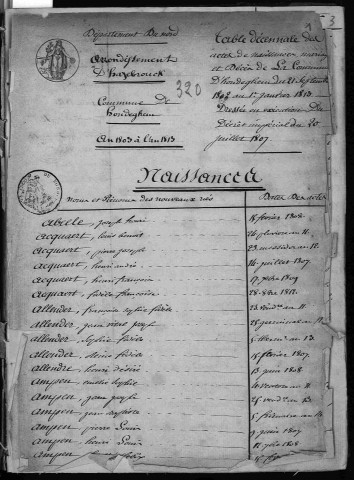 Département Du nord
Arrondissement
D'hazebrouck
Commune De
hondeghem
An 1803 à l'an 1813
320
Table décennale des
actes de naissances, mariages
et Décès de La Commune
D'hondeghem du 21 Septembre
1802 au 1er janvier 1813
Dressée en exécution du
Décret impérial du 20
juillet 1807.
Naissances
Noms et Prénoms des nouveaux nés
Dates Des actes
Abeele, joseph henri 18 février 1808
Acquaert, louis benoit 26 pluviose an 11
Acquaert, pierre joseph 23 messidor an 12
Acquaert, henri andré 16 juillet 1807
Acquaert, henri françois 1809
Acquaert, fidèle françoise 1812
Allender, françois fidèle 23 vendre an 11
Allender, jean joseph 28 germinal an 11
Allender, Sophie fidèle 5 an 13
Allender, fidèle 18 février 1807
Allendre, henri désiré 13 juin 1808
Ampen, Sophie 4 ventose an 11
Ampen, jean joseph 25 vendre an 13
Ampen, jean baptiste 5 an 13
Ampen, pierre Louis 9 janvier 1807
Ampen, henri Louis 1808
Ampen